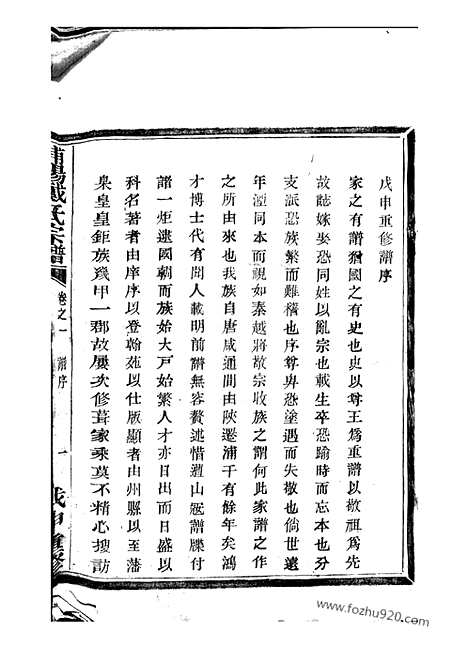 戊申重修譜序
家之有譜猶國之有史也史以尊王爲重譜以敬祖爲先
故誌嫁娶恐同姓以亂宗也載生卒恐踰時而忘本也分
支派恐族繁而難稽也序尊卑恐塗遇而失敬也倘世遠
年湮同本而視如秦越將敬宗收族之謂何此家譜之作
之所由來也我族自唐咸通間由陝遷浦千有餘年矣鴻
才博士代有聞人載明前譜無容贅述惜遭山寇譜牒付
諸一炬逮國朝而族始大戸始繁人才亦日出而日盛以
科名著者由庠序以登翰苑以仕版顯者由州縣以至藩
臬皇皇鉅族幾甲一郡故屢次修葺家乘莫不精心搜訪
浦陽戴氏宗譜
卷之一
譜序
一
戊申重修
www.fozhu920.com